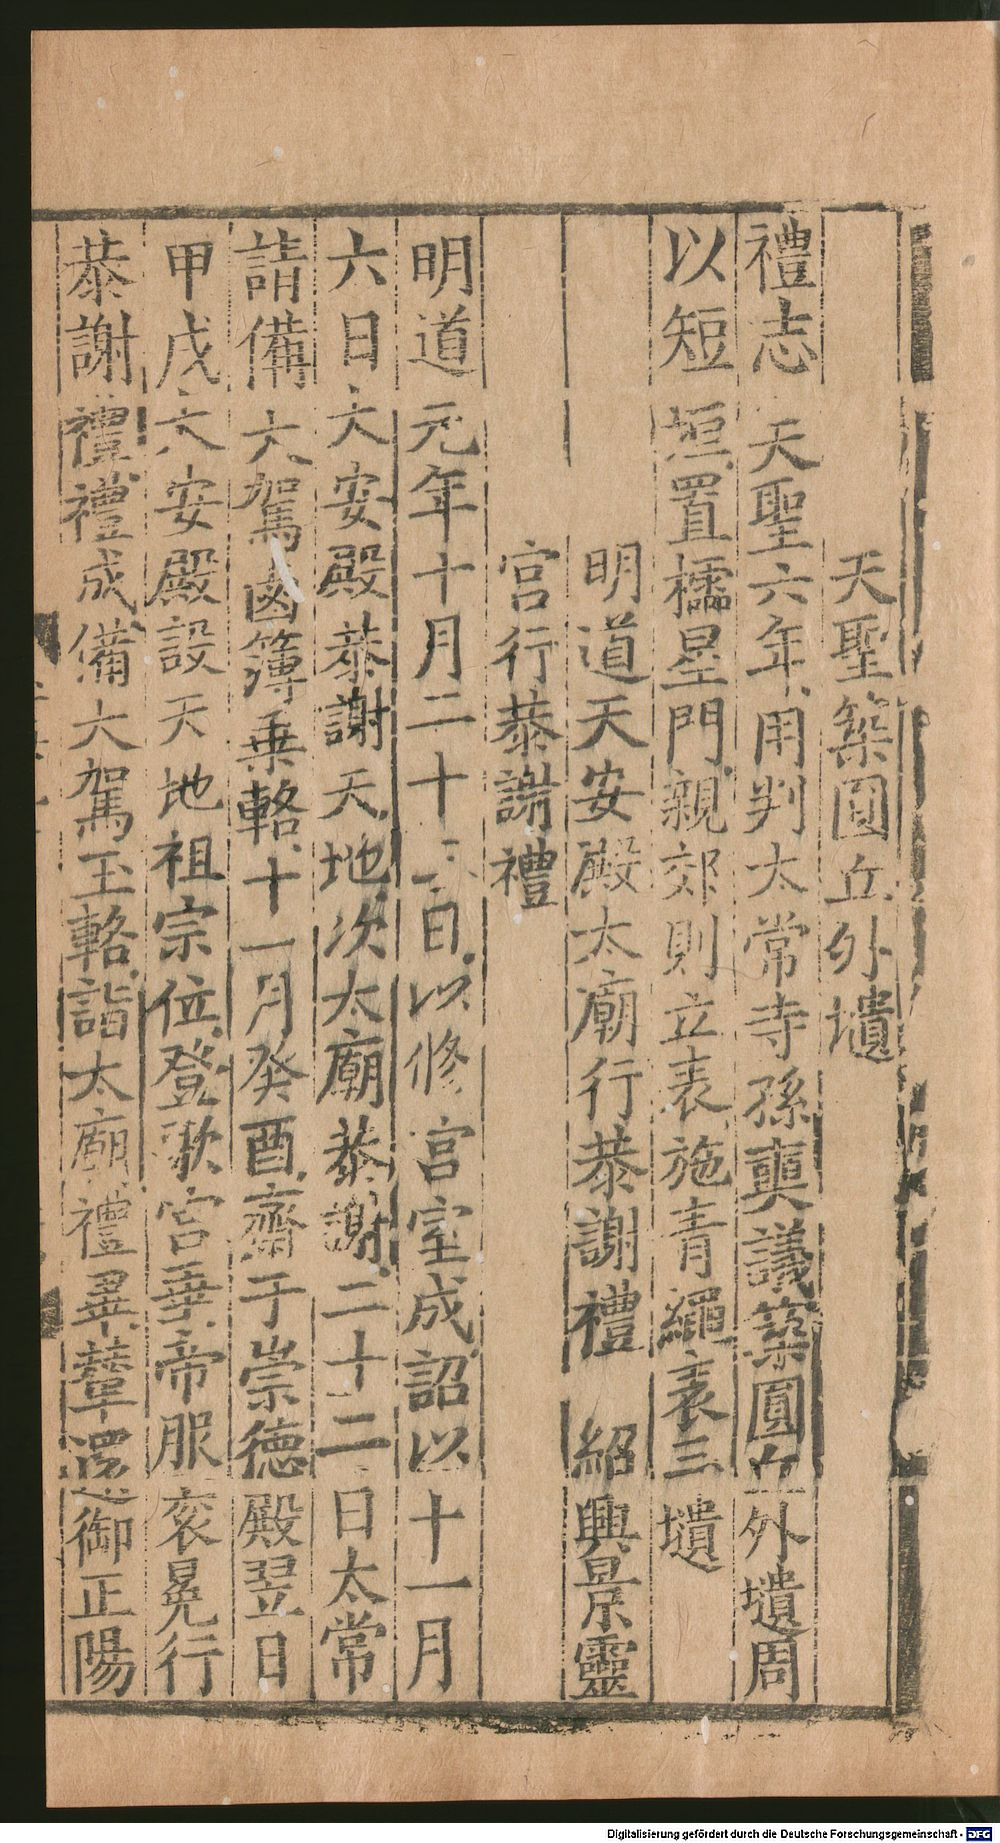 天聖築圓丘外壝
禮志天聖六年用判太常寺孫奭議築圓丘外壝周
以短垣置櫺星門親郊則立表施青繩表三壝
明道天安殿太廟行恭謝禮 紹興景靈
宮行恭謝禮
明道元年十月二十日以修宮室成詔以十一月
六日大安殿恭謝天地次太廟恭謝二十二日太常
請備大駕鹵簿乗輅十一月癸酉齋于崇德殿翌日
甲戌大安殿設天地祖宗位登歌宮垂帝服衮冕行
恭謝禮禮成備大駕玉輅詣太廟禮畢輦還御正陽
Digitalisierung gefördert durch die Deutsche Forschungsgemeinschaft - DFG